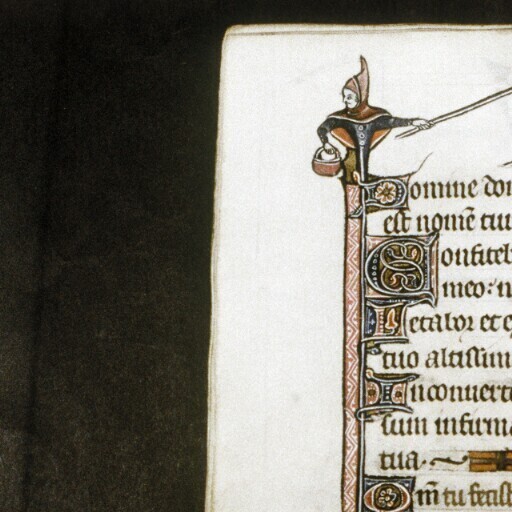 Domine do
est nomē tuu
Confiteb
meo: n
Letabor et e
tuo altissim
In conuerte
sum infirm
tua.
Qm̄ tu fecis